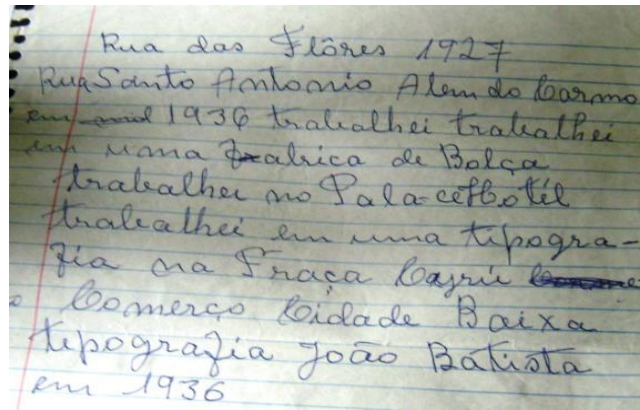 Rua das Flôres 1927
Rua Santo Antonio Alem do Carmo
em 1936 trabalhei trabalhei
em uma Fabrica de Bolça
trabalhei no Palace Hotil
trabalhei em uma tipogra-
fia na Praça Cayrú
Comerço Cidade Baixa
tipografia João Batista
em 1936